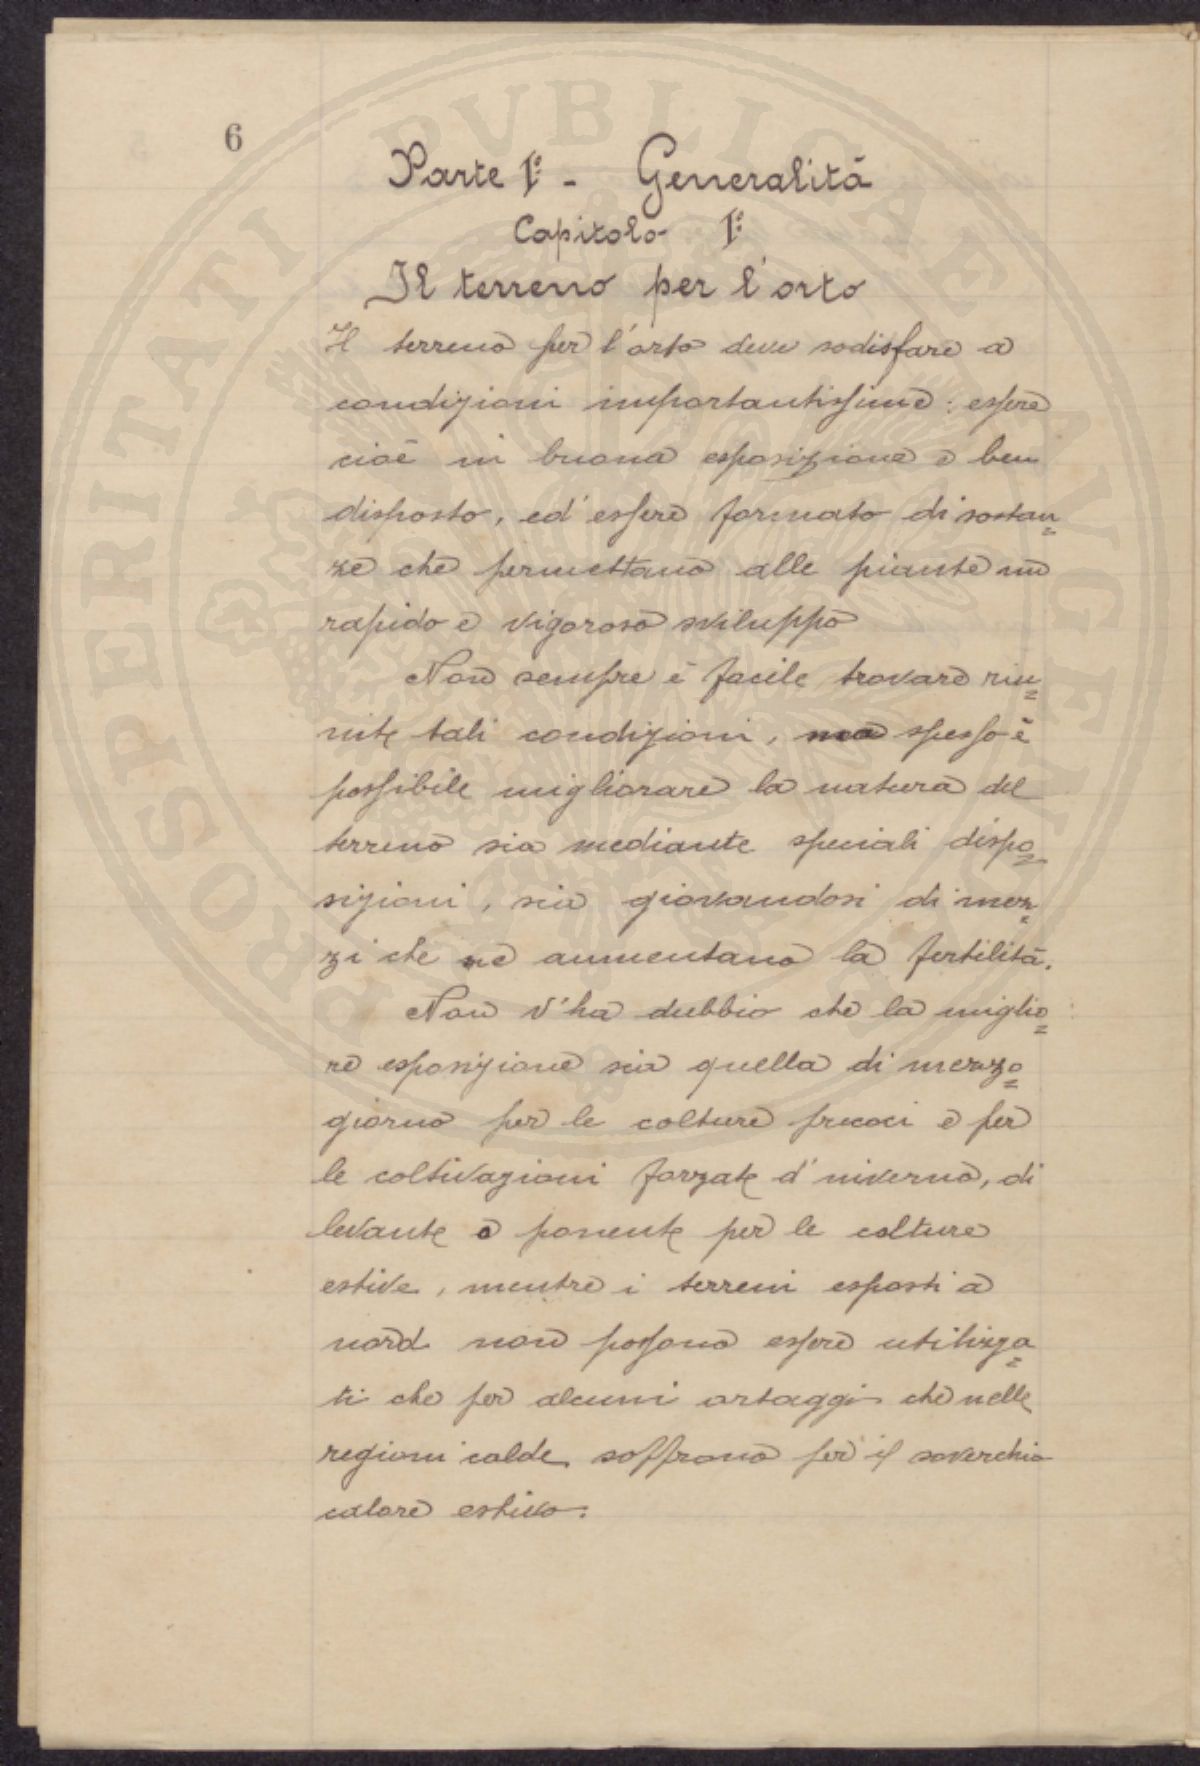 6
Parte Iª - Generalità
Capitolo Iº
Il terreno per l'orto
Il terreno per l'orto deve sodisfare a
condizioni importantissime: essere
cioè in buona esposizione e ben
disposto, ed essere formato di sostan=
ze che permettano alle piante un
rapido e vigoroso sviluppo
Non sempre è facile trovare riu=
nite tali condizioni, ma spesso è
possibile migliorare la natura del
terreno sia mediante speciali dispo=
sizioni, sia giovandosi di mez=
zi che ne aumentano la fertilità.
Non v'ha dubbio che la miglio=
re esposizione sia quella di mezzo=
giorno per le colture precoci e per
le coltivazioni forzate d'inverno, di
levante o ponente per le colture
estive, mentre i terreni esposti a
nord non possono essere utilizza=
ti che per alcuni ortaggi che nelle
regioni calde soffrono per il soverchio
calore estivo.
PROSPERITATI PVBLICAE AVGENDAE